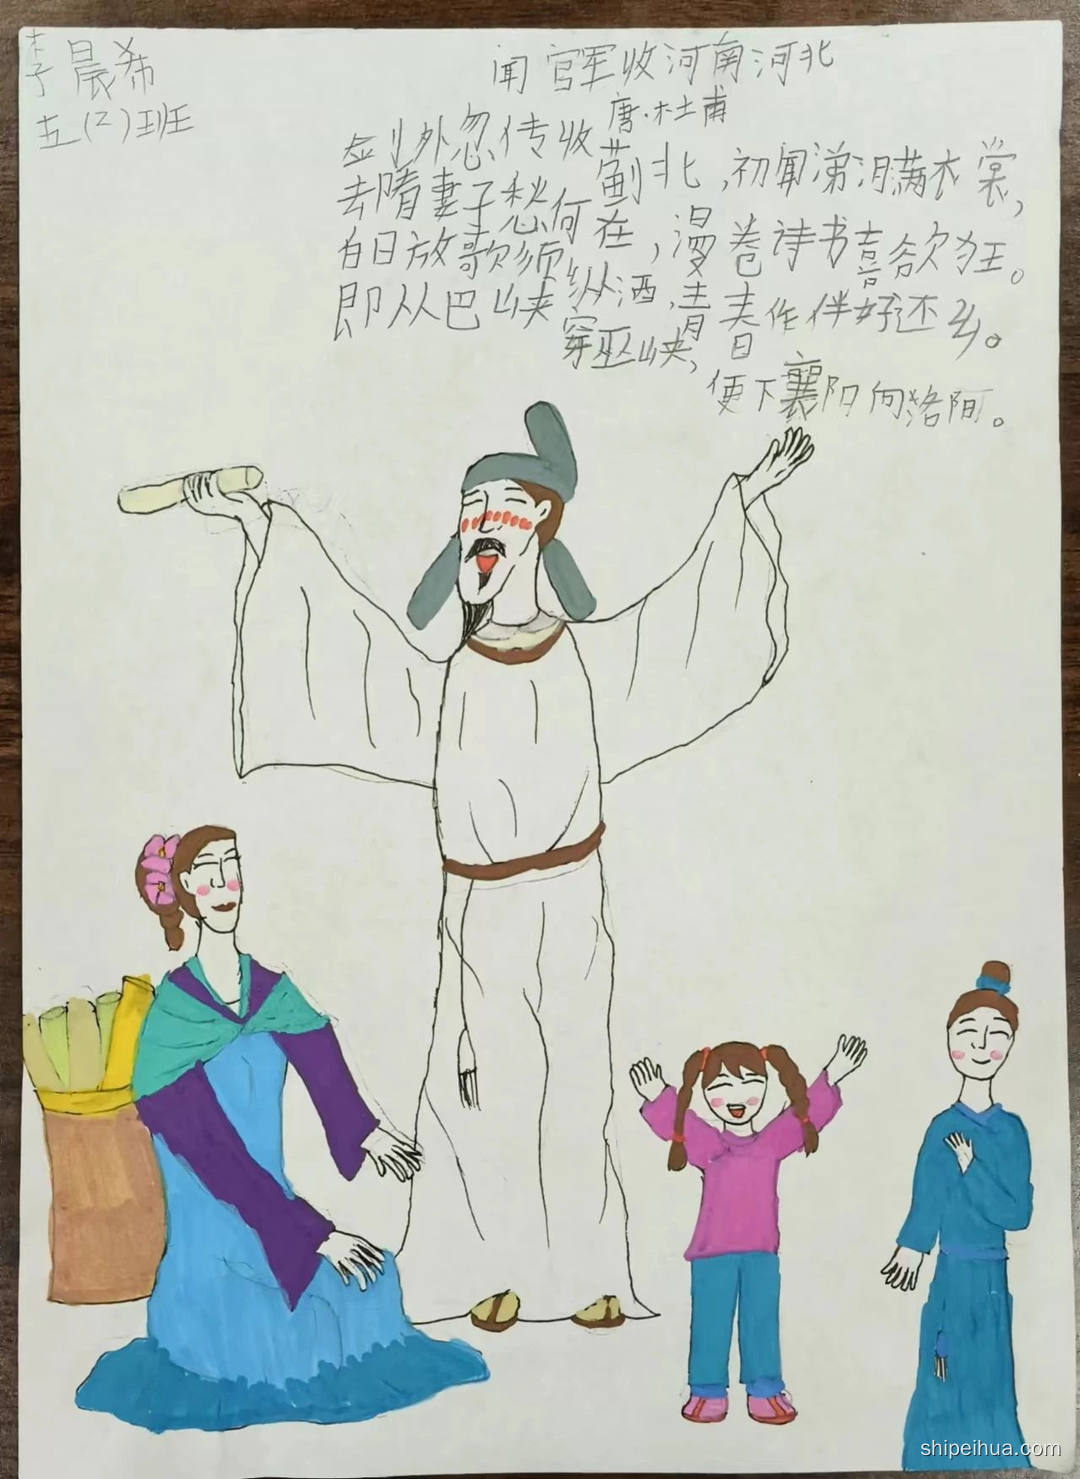 李晨希
五(2)班
闻官军收河南河北
唐·杜甫
剑外忽传收蓟北,初闻涕泪满衣裳,
却看妻子愁何在,漫卷诗书喜欲狂。
白日放歌须纵酒,青春作伴好还乡。
即从巴峡穿巫峡,
便下襄阳向洛阳。
shipeihua.com